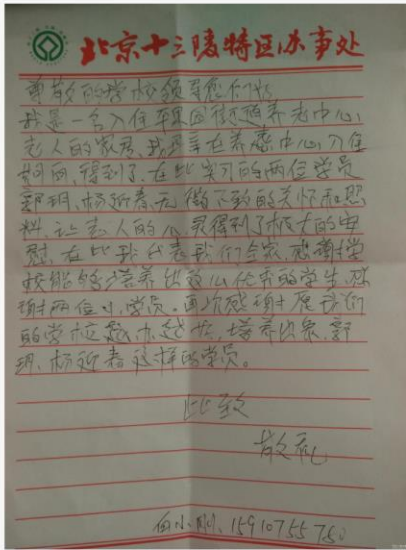 北京十三陵特区办事处
尊敬的学校领导您们好
我是一名入住平安园街道养老中心
老人的家属,我母亲在养老中心入住
期间,得到了在此实习的两位学员
郭玥、杨迎春,无微不至的关怀和照
料,让老人的心灵得到了极大的安
慰,在此我代表我们全家,感谢学
校能够培养出这么优秀的学生,感
谢两位小学员。再次感谢,愿我们
的学校越办越好,培养出象郭
玥、杨迎春这样的学员。
此致
敬礼
15910755750